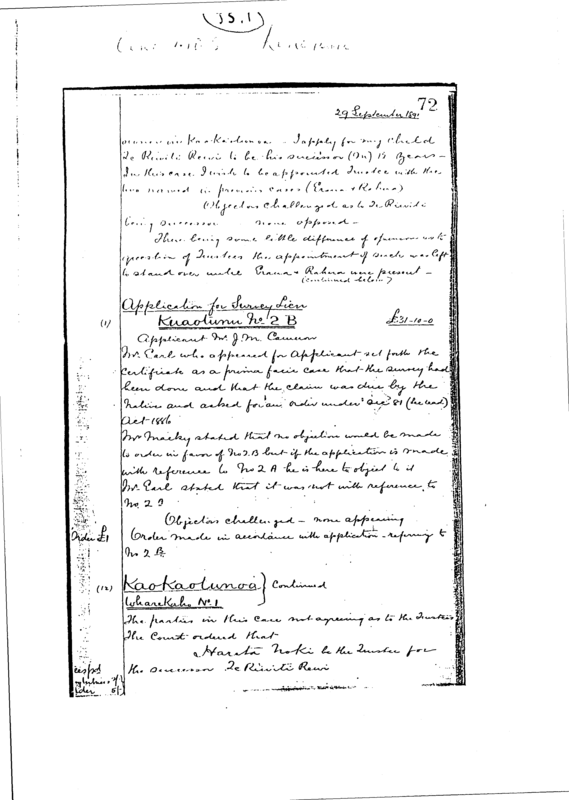 (JS.1)
72
29 September 189
Kaokaotunoa - I apply for my child
Te Riwiti Rewi to be his successor (m) 14 years -
In this case I wish to be appointed Trustee with the
two named in previous cases (Erana & Rahera)
Objectors challenged as to Te Riwiti
being successor none opposed -
There being some little difference of opinion as to
question of Trustees the appointment of such was left
to stand over until Erana & Rahera were present -
(continued below)
Application for Survey Lien
(1) Kuaotunu No 2 B £31-10-0
Applicant Mr J. M. Cameron
Mr. Earl who appeared for Applicant set forth the
Certificate as a prima facie case that the survey had
been done and that the claim was due by the
Natives and asked for an order under Sec 81
Act 1886
Mr Mackey stated that no objection would be made
to order in favor of No 2B but if the application is made
with reference to No 2 A he is here to object to it
Mr. Earl stated that it was not with reference to
No 2
Objectors challenged - none appearing
Order £1 Order made in accordance with application - referring to
No 2 B
(12) Kaokaotunoa } Continued
Wharekaho No 1
The parties in this case not agreeing as to the Trustees
The Court ordered that
Harata Noki be the Trustee for
the successor Te Riwiti Rewi